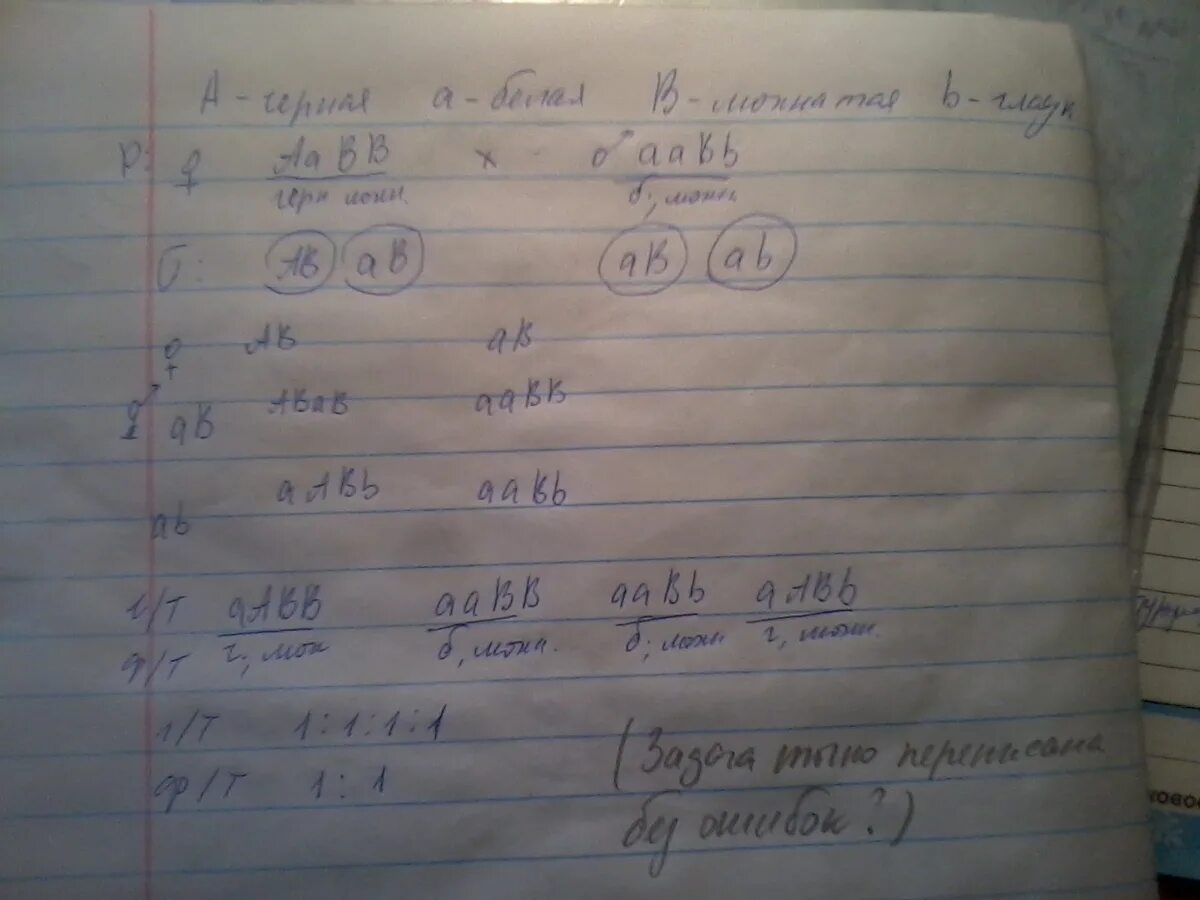 A - черная а - белая B - мохнатая b - гладк
P: ♀ AaBB x ♂ aaBb
черн мохн. б; мохн.
G: AB aB aB ab
♀ AB aB
♂ aB ABaB aaBB
ab aABb aaBb
г/т aABB aaBB aaBb aABb
ф/т ч; мох б, мохн. б; мохн ч, мохн.
г/т 1:1:1:1
ф/т 1:1
(Задача тыно переписана
без ошибок?)
ковос